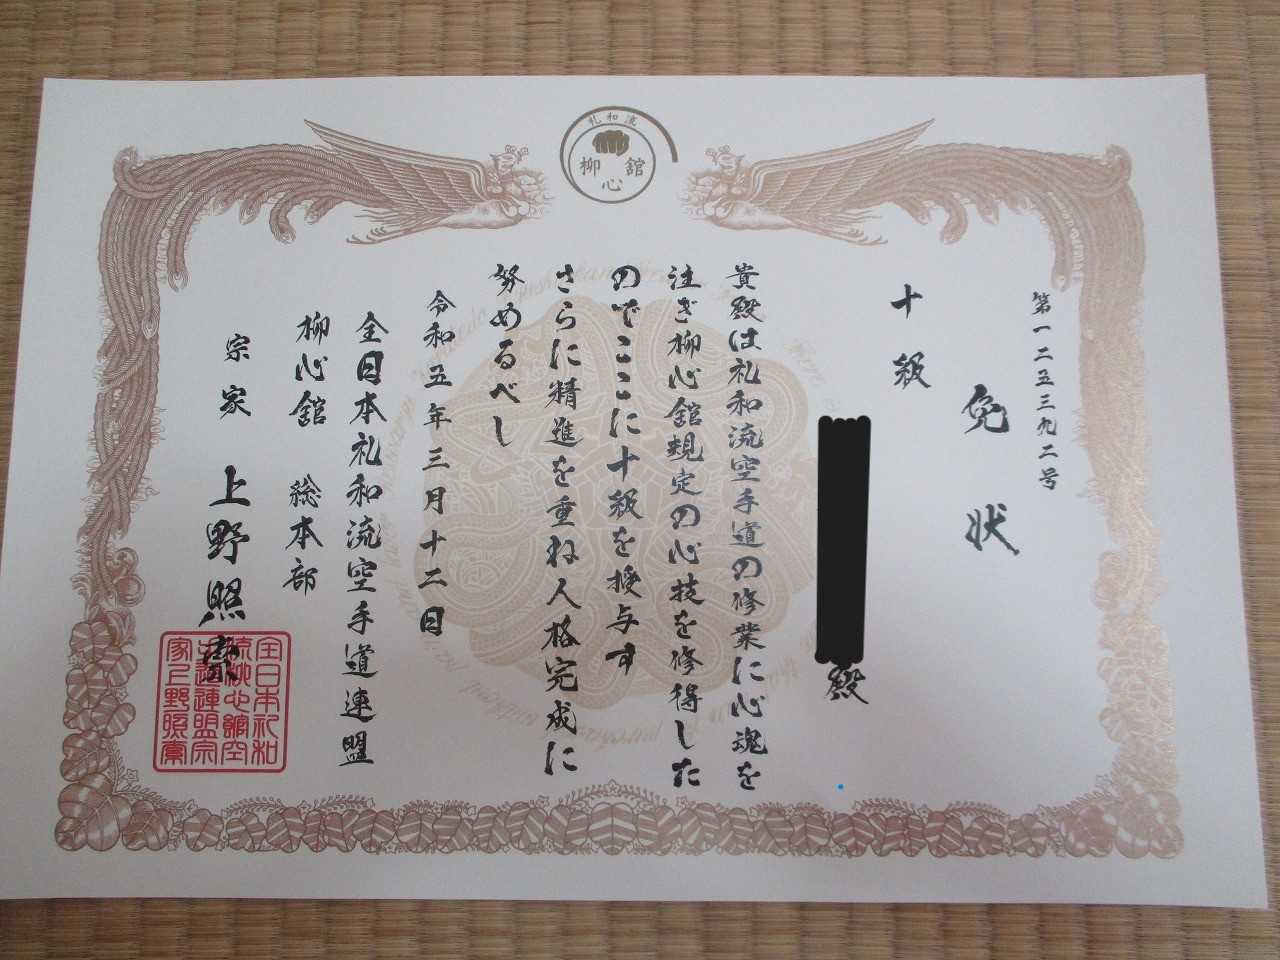 礼和流
柳心舘
第一二五三九二号
免状
十級
殿
貴殿は礼和流空手道の修業に心魂を
注ぎ柳心舘規定の心技を修得した
のでここに十級を授与す
さらに精進を重ね人格完成に
努めるべし
令和五年三月十二日
全日本礼和流空手道連盟
柳心舘 総本部
宗家 上野照
全日本礼和
流柳心舘空
手道連盟宗
家上野照